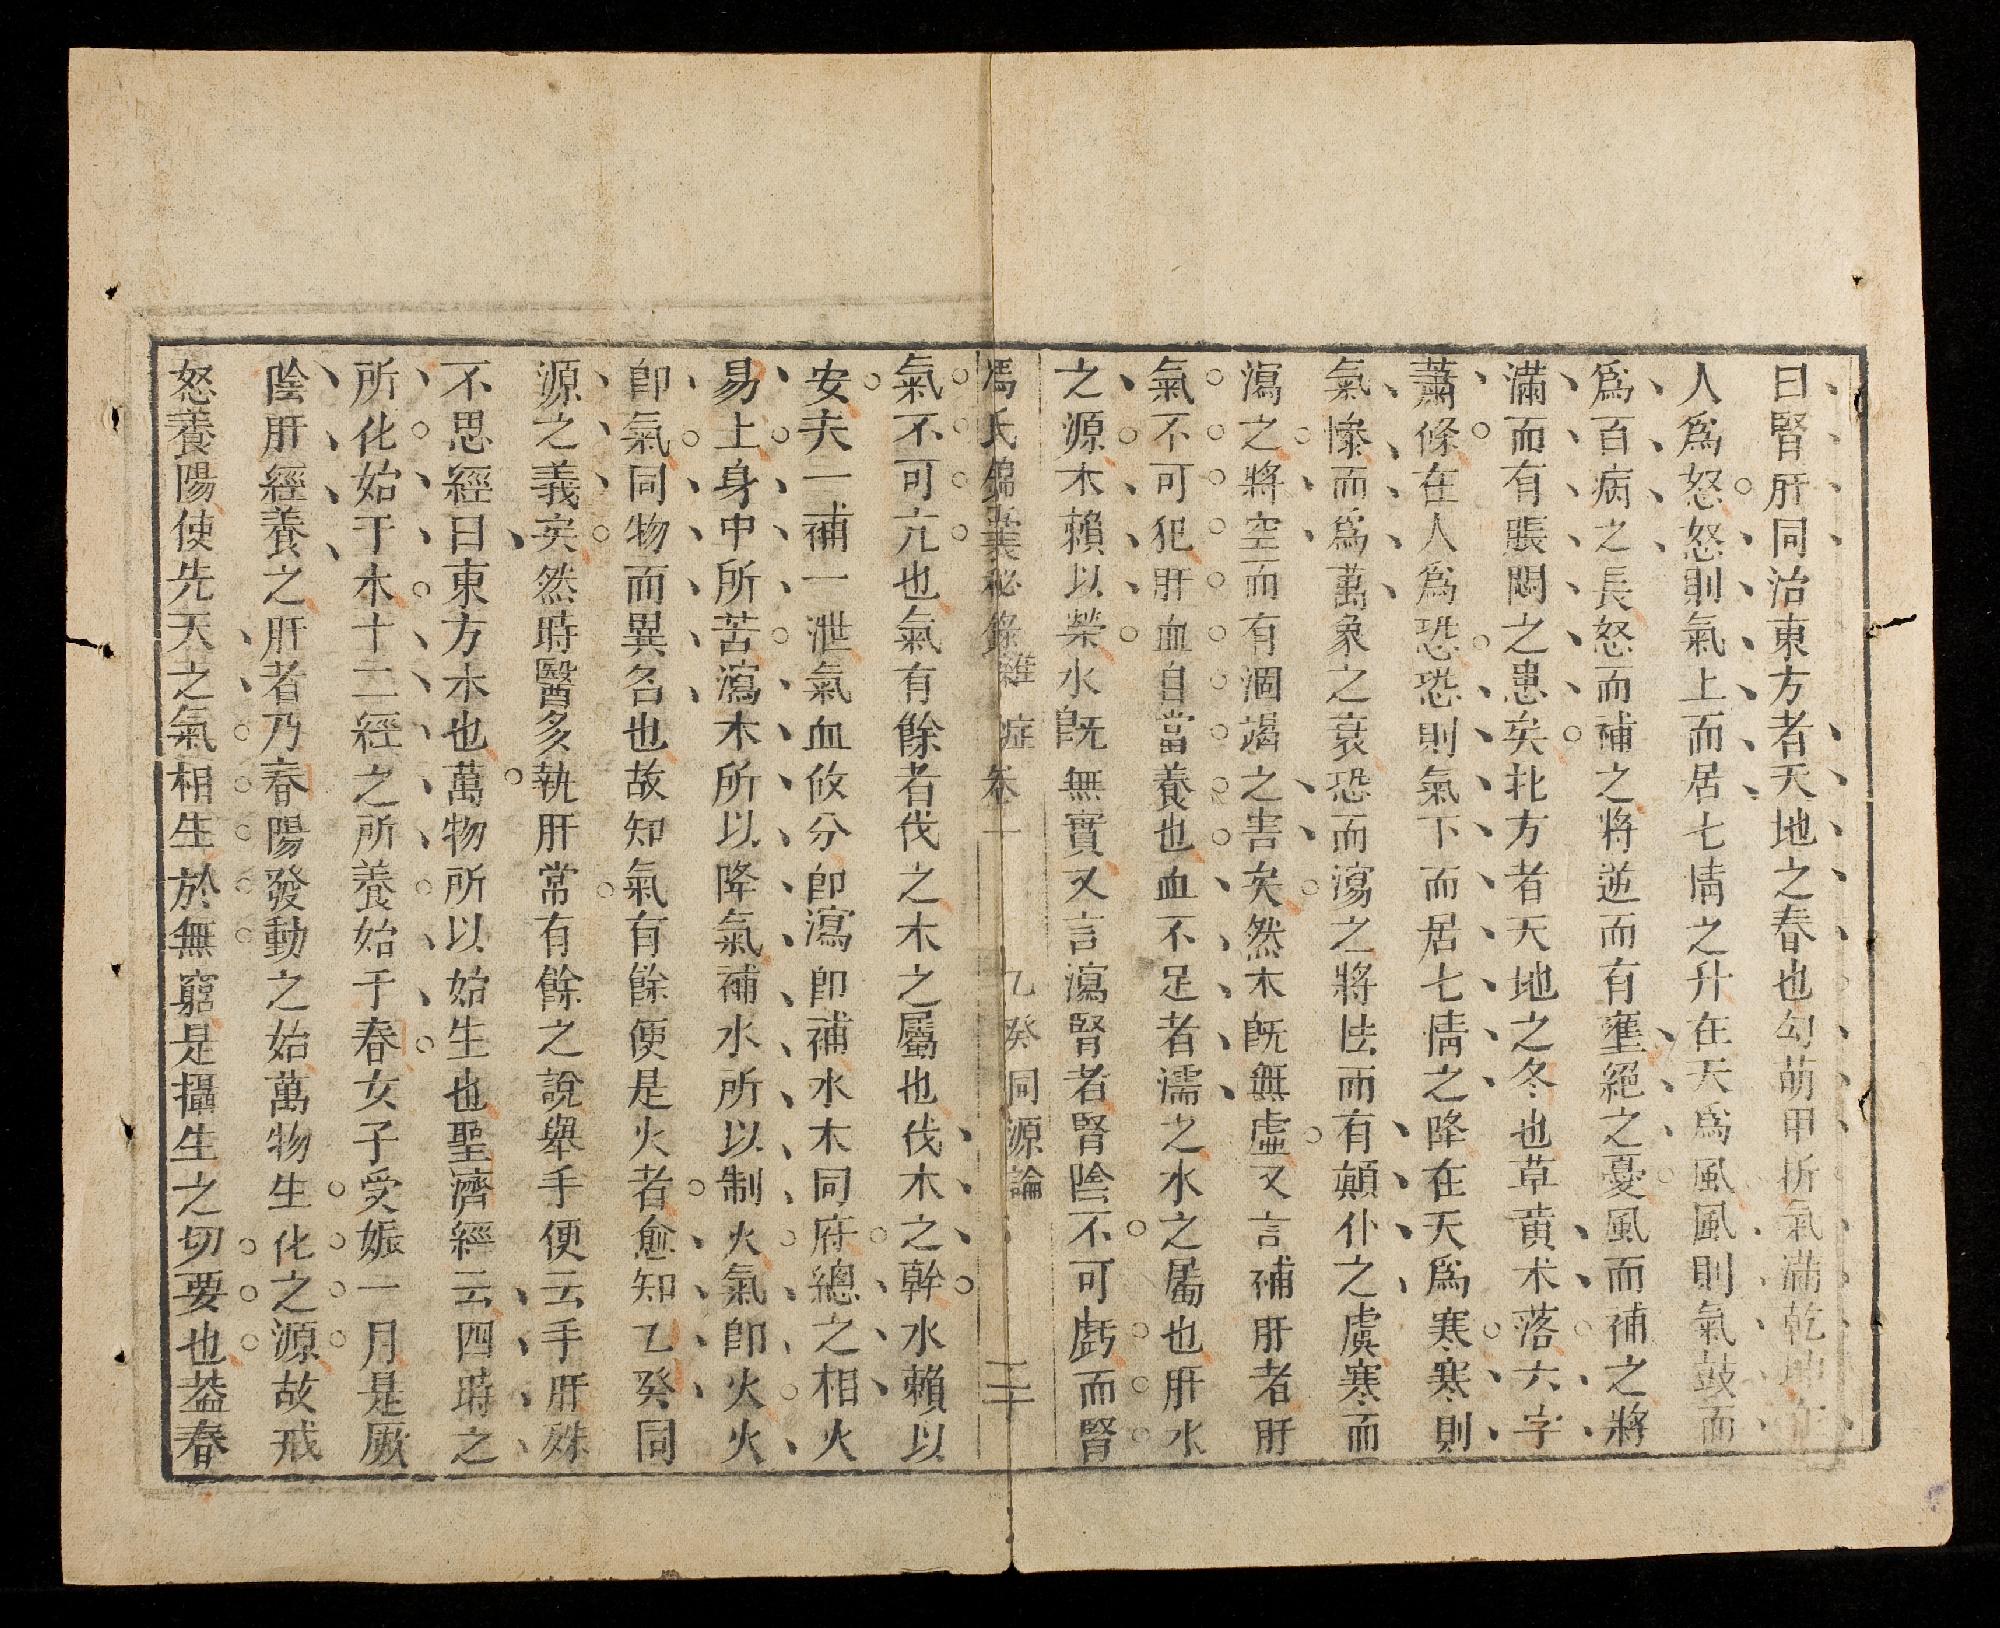 曰腎肝同治東方者天地之春也勾萌甲拆氣滿乾坤在
人爲怒怒則氣上而居七情之升在天爲風風則氣鼓而
爲百病之長怒而補之將逆而有壅絕之憂風而補之將
滿而有脹悶之患矣北方者天地之冬也草黄木落六字
蕭條在人爲恐恐則氣下而居七情之降在天爲寒寒則
氣慘而爲萬象之衰恐而瀉之將怯而有顚仆之虞寒而
瀉之將空而有涸竭之害矣然木旣無虛又言補肝者肝
氣不可犯肝血自當養也血不足者濡之水之屬也肝水
之源木賴以榮水旣無實又言瀉腎者腎陰不可虧而腎
馮氏錦囊秘錄 雜症 卷一 乙癸同源論 二十
氣不可亢也氣有餘者伐之木之屬也伐木之幹水賴以
安夫一補一泄氣血攸分卽瀉卽補水木同府總之相火
易上身中所苦瀉木所以降氣補水所以制火氣卽火火
卽氣同物而異名也故知氣有餘便是火者愈知乙癸同
源之義矣然時醫多執肝常有餘之說舉手便云手肝殊
不思經曰東方木也萬物所以始生也聖濟經云四時之
所化始于木十二經之所養始于春女子受娠一月是厥
陰肝經養之肝者乃春陽發動之始萬物生化之源故戒
怒養陽使先天之氣相生於無窮是攝生之切要也葢春